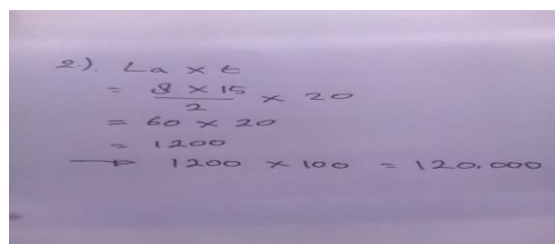 2.). La x t
= 8 x 15 / 2 x 20
= 60 x 20
= 1200
→ 1200 x 100 = 120.000